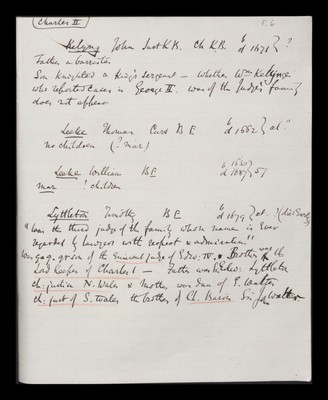 Charles II
Kelyng John Just K.B. Ch K.B. b d 1671 } ?
Father a barrister
Son knighted & King's sergeant — whether Wm Kelynge
who reported cases in George II. was of the Judge's family
does not appear
Leeke Thomas Curs B E b d 1662 } at ?
no children (? mar)
Leeke William B E b d 1687 } 51
mar ? children
Lyttleton Timothy B E b d 1679 } at ?
"Was the third judge of the family whose name is ever
regarded by lawyers with respect & admiration"
Was g. gr son of the eminent judge of Edw: IV. Brother was the
Lord Keeper of Charles I — Father was Edw: Lyttleton
ch: justice N. Wales & Mother was dau of E. Walter
ch: just of S. Wales the brother of Ch. Baron Sir Jn Walter